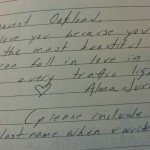 earest Oakland,
love you because you
the most beautiful
can fall in love in
every traffic lig
Alma Jur
(please include
last name when u write